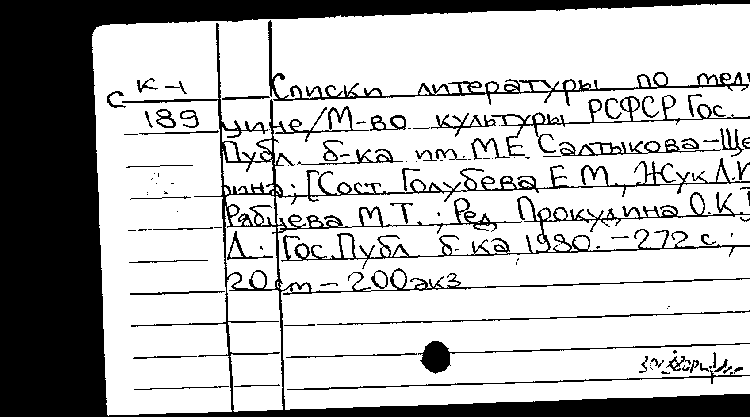 С К-1 Списки литературы по меди
189 цине/М-во культуры РСФСР, Гос.
Публ. б-ка им. М Е Салтыкова-Ще
рина; [Сост. Голубева Е. М., Жук Л.И
Рябцева М. Т. ; Ред Прокудина О.К.]
Л. : Гос. Публ б-ка, 1980. - 272 с. ;
20 cm - 200 экз